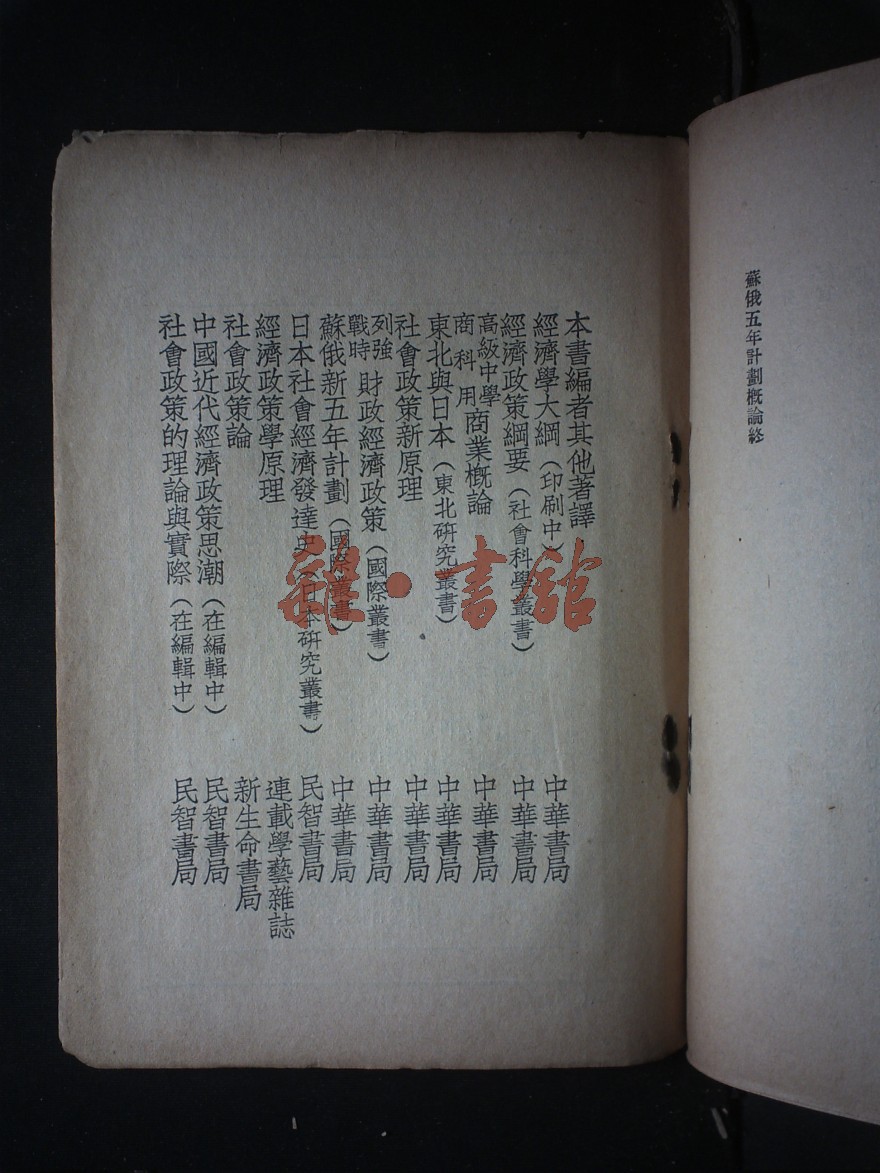 蘇俄五年計劃概論終
本書編者其他著譯
經濟學大綱（印刷中） 中華書局
經濟政策綱要（社會科學叢書） 中華書局
高級中學商科用商業概論 中華書局
東北與日本（東北研究叢書） 中華書局
社會政策新原理 中華書局
列強戰時財政經濟政策（國際叢書） 中華書局
蘇俄新五年計劃（國際叢書） 中華書局
日本社會經濟發達史（日本研究叢書） 民智書局
經濟政策學原理 連載學藝雜誌
社會政策論 新生命書局
中國近代經濟政策思潮（在編輯中） 民智書局
社會政策的理論與實際（在編輯中） 民智書局
書館